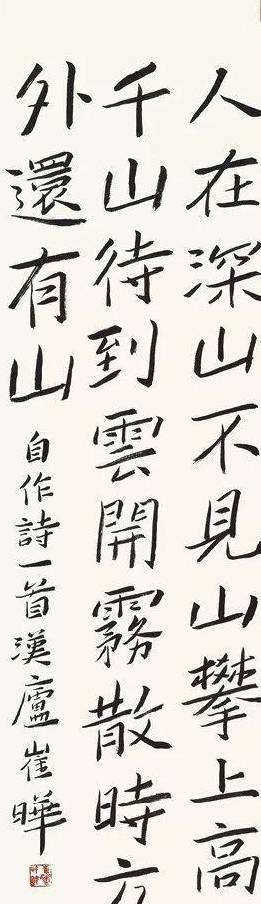 人在深山不見山攀上高
千山待到雲開霧散時方
外還有山
自作詩一首漢廬崔曄